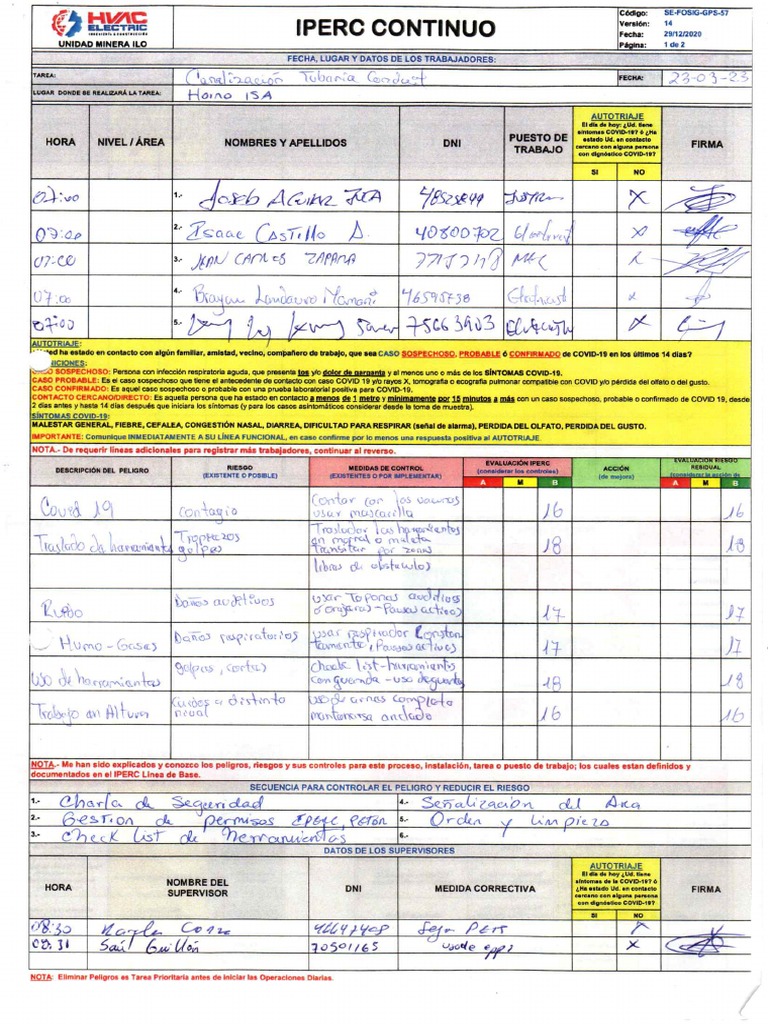 HVAC ELECTRIC
INGENIERIA & CONSTRUCCION
UNIDAD MINERA ILO
IPERC CONTINUO
Código: SE-FOSIG-GPS-57
Versión: 14
Fecha: 29/12/2020
Página: 1 de 2
FECHA, LUGAR Y DATOS DE LOS TRABAJADORES:
TAREA: Canalización Tuberia Conduit
FECHA: 23-03-23
LUGAR DONDE SE REALIZARÁ LA TAREA: Horno ISA
HORA NIVEL / ÁREA NOMBRES Y APELLIDOS DNI PUESTO DE TRABAJO AUTOTRIAJE FIRMA
El día de hoy: ¿Ud. tiene síntomas COVID-19? ó ¿Ha estado Ud. en contacto cercano con alguna persona con dignóstico COVID-19?
SI NO
07:00 1.- Joseb Aguilar X
07:00 2.- Isaac Castillo A. 40800702 X
07:00 3.- Jean Carlos Zapana X
07:00 4.- Brayan Landauro Mamani 46595738 x
07:00 5.- 75663903 X
AUTOTRIAJE:
ed ha estado en contacto con algún familiar, amistad, vecino, compañero de trabajo, que sea CASO SOSPECHOSO, PROBABLE ó CONFIRMADO de COVID-19 en los últimos 14 días?
ICIONES:
CASO SOSPECHOSO: Persona con infección respiratoria aguda, que presenta tos y/o dolor de garganta y al menos uno o más de los SÍNTOMAS COVID-19.
CASO PROBABLE: Es el caso sospechoso que tiene el antecedente de contacto con caso COVID 19 y/o rayos X, tomografia o ecografia pulmonar compatible con COVID y/o pérdida del olfato o del gusto.
CASO CONFIRMADO: Es aquel caso sospechoso o probable con una prueba laboratorial positiva para COVID-19.
CONTACTO CERCANO/DIRECTO: Es aquella persona que ha estado en contacto a menos de 1 metro y mínimamente por 15 minutos a más con un caso sospechoso, probable o confirmado de COVID 19, desde
2 días antes y hasta 14 días después que iniciara los síntomas (y para los casos asintomáticos considerar desde la toma de muestra).
SÍNTOMAS COVID-19:
MALESTAR GENERAL, FIEBRE, CEFALEA, CONGESTIÓN NASAL, DIARREA, DIFICULTAD PARA RESPIRAR (señal de alarma), PERDIDA DEL OLFATO, PERDIDA DEL GUSTO.
IMPORTANTE: Comunique INMEDIATAMENTE A SU LÍNEA FUNCIONAL, en caso confirme por lo menos una respuesta positiva al AUTOTRIAJE.
NOTA.- De requerir líneas adicionales para registrar más trabajadores, continuar al reverso.
DESCRIPCIÓN DEL PELIGRO RIESGO (EXISTENTE O POSIBLE) MEDIDAS DE CONTROL (EXISTENTES O POR IMPLEMENTAR) EVALUACIÓN IPERC (considerar los controles) ACCIÓN (de mejora) EVALUACIÓN RIESGO RESIDUAL (considerar la acción de
A M B A M B
Covid 19 contagio Contar con las vacunas
usar mascarilla 16 16
Traslado de herramientas Tropiezos golpes Trasladar las herramientas
en morral o maleta
transitar por zonas 18 18
libres de obstaculos
Ruido Daños auditivos usar Tapones auditivos
o orejeras - Pausas activas 17 17
Humo - Gases Daños respiratorios usar respirador Constan
temente, Pausas activas 17 17
uso de herramientas golpes, cortes check list - herramientas
con guarda - uso de guantes 18 18
Trabajo en Altura caidas a distinto nivel uso de arnes completo
mantenerse anclado 16 16
NOTA.- Me han sido explicados y conozco los peligros, riesgos y sus controles para este proceso, instalación, tarea o puesto de trabajo; los cuales estan definidos y
documentados en el IPERC Línea de Base.
SECUENCIA PARA CONTROLAR EL PELIGRO Y REDUCIR EL RIESGO
1.- Charla de Seguridad 4.- Señalización del Area
2.- Gestion de permisos IPERC, PETAR 5.- Orden y limpieza
3.- Check list de herramientas 6.-
DATOS DE LOS SUPERVISORES
HORA NOMBRE DEL SUPERVISOR DNI MEDIDA CORRECTIVA AUTOTRIAJE FIRMA
El día de hoy ¿Ud. tiene síntomas de la COVID-19? ó ¿Ha estado Ud. en contacto cercano con alguna persona con dignóstico COVID-19?
SI NO
08:30 X
08:31 Saúl Guillén 70501165 uso de epps X
NOTA: Eliminar Peligros es Tarea Prioritaria antes de iniciar las Operaciones Diarias.